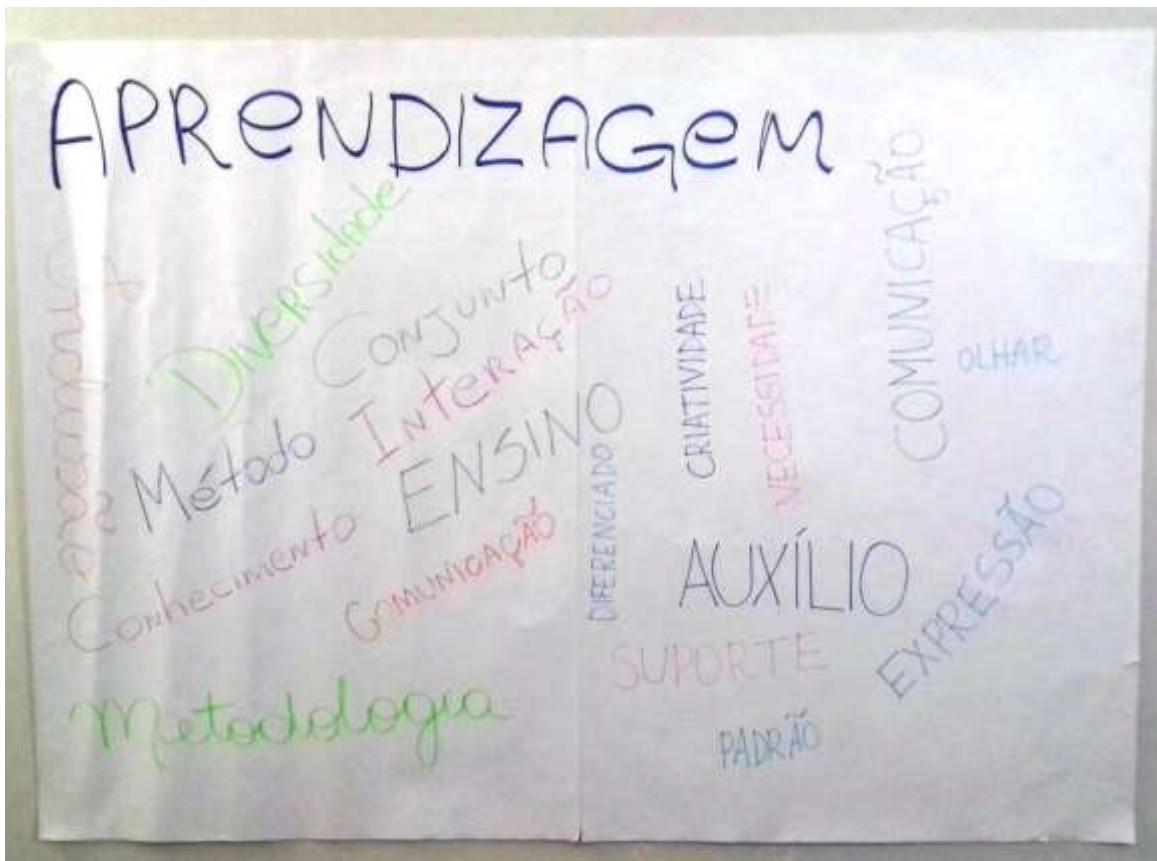 APReNDIZAGeM
Diversidade
Conjunto
Interação
Método
ENSINO
Conhecimento
Comunicação
Metodologia
DIFERENCIADO
CRIATIVIDADE
NECESSIDADE
COMUNICAÇÃO
OLHAR
AUXÍLIO
EXPRESSÃO
SUPORTE
PADRÃO